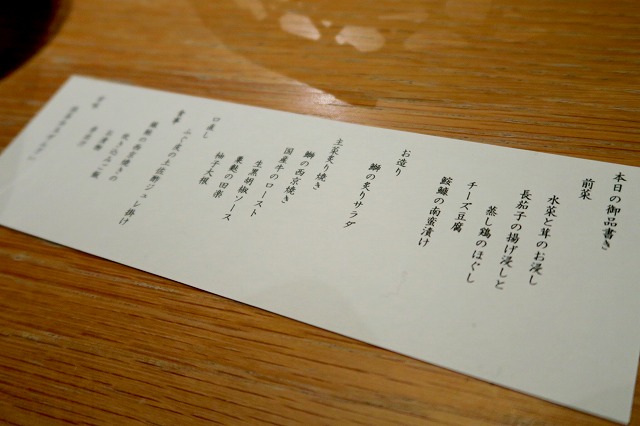 本日の御品書き
前菜
水菜と茸のお浸し
長茄子の揚げ浸しと
蒸し鶏のほぐし
チーズ豆腐
鮟鱇の南蛮漬け
お造り
鰤の炙りサラダ
主菜炙り焼き
鰤の西京焼き
国産牛のロースト
生黒胡椒ソース
粟麩の田楽
柚子大根
口直し
ふぐ皮の土佐酢ジュレ掛け
食事
銀鮭の西京焼きの
炊き込みご飯
赤出汁